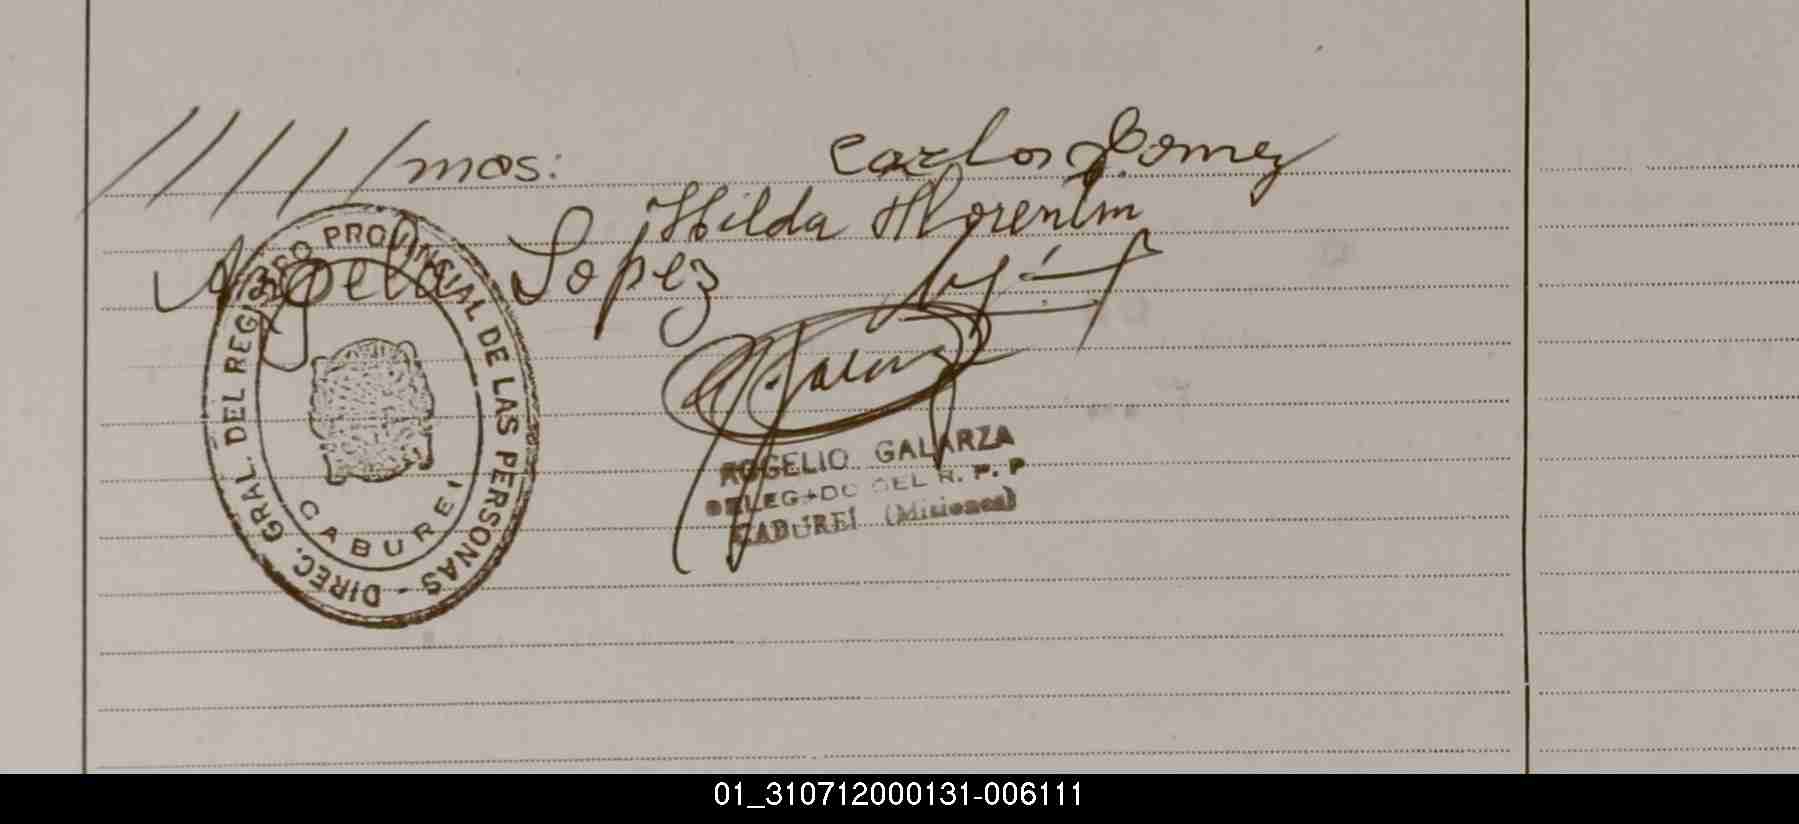 /////mos:
Carlos Gomez
Hilda Florentin
Noelia Lopez
DIREC. GRAL. DEL REGISTRO PROVINCIAL DE LAS PERSONAS -
CABUREI
ROGELIO GALARZA
DELEGADO DEL R. P. P
CABUREI (Misiones)
01_310712000131-006111